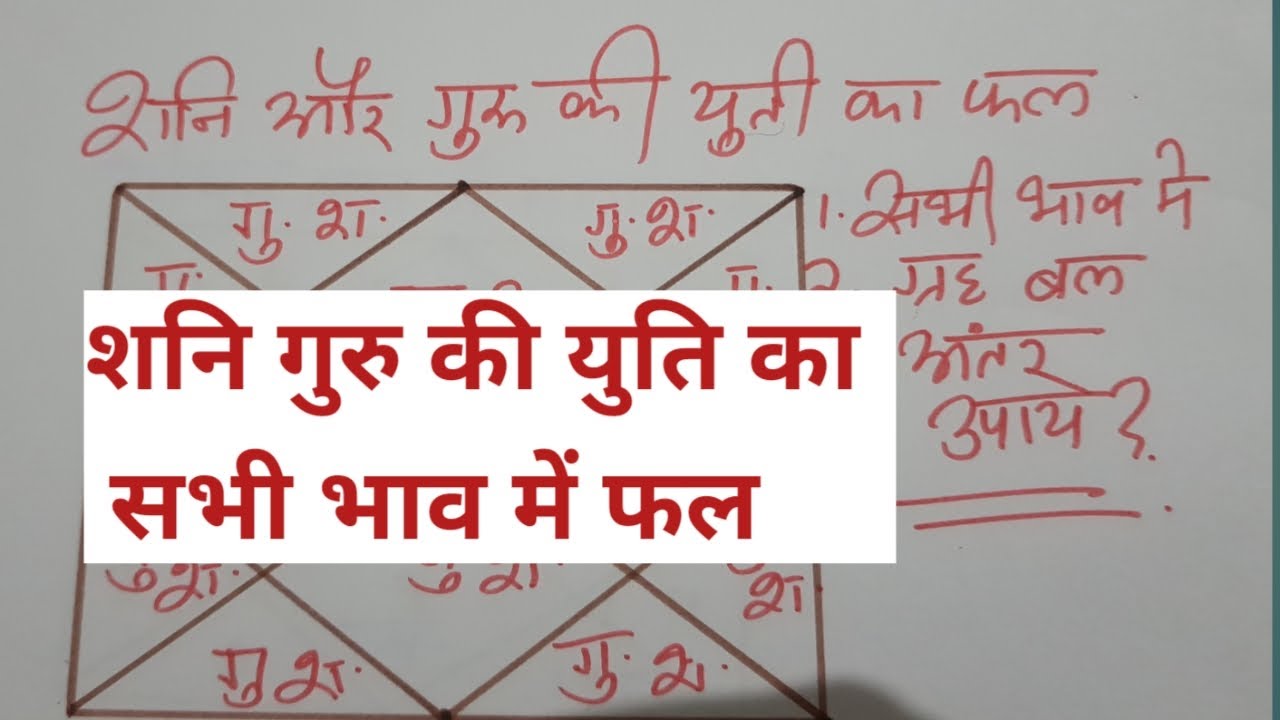 शनि और गुरु की युती का फल
गु. श.
गु. श.
1. सभी भाव मे
गु.
2. ग्रह बल
शनि गुरु की युति का
अंतर
उपाय ?
सभी भाव में फल
गु श.
गु श.
श.
गु श.
गु. श.